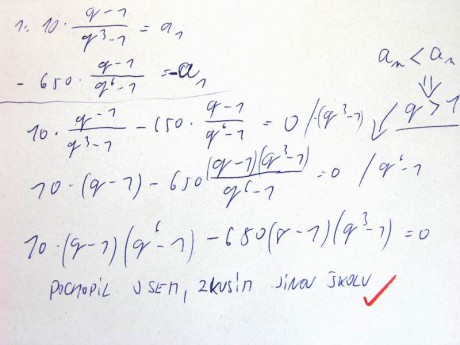 1: 10 · (q-1)/(q³-1) = a₁
- 650 · (q-1)/(q⁶-1) = -a₁
aₙ < aₙ
⇓
q > 1
10 · (q-1)/(q³-1) - 650 · (q-1)/(q⁶-1) = 0 / · (q³-1)
10 · (q-1) - 650 (q-1)(q³-1)/(q⁶-1) = 0 / q⁶-1
10 · (q-1)(q⁶-1) - 650(q-1)(q³-1) = 0
POCHOPIL JSEM, ZKUSÍM JINOU ŠKOLU